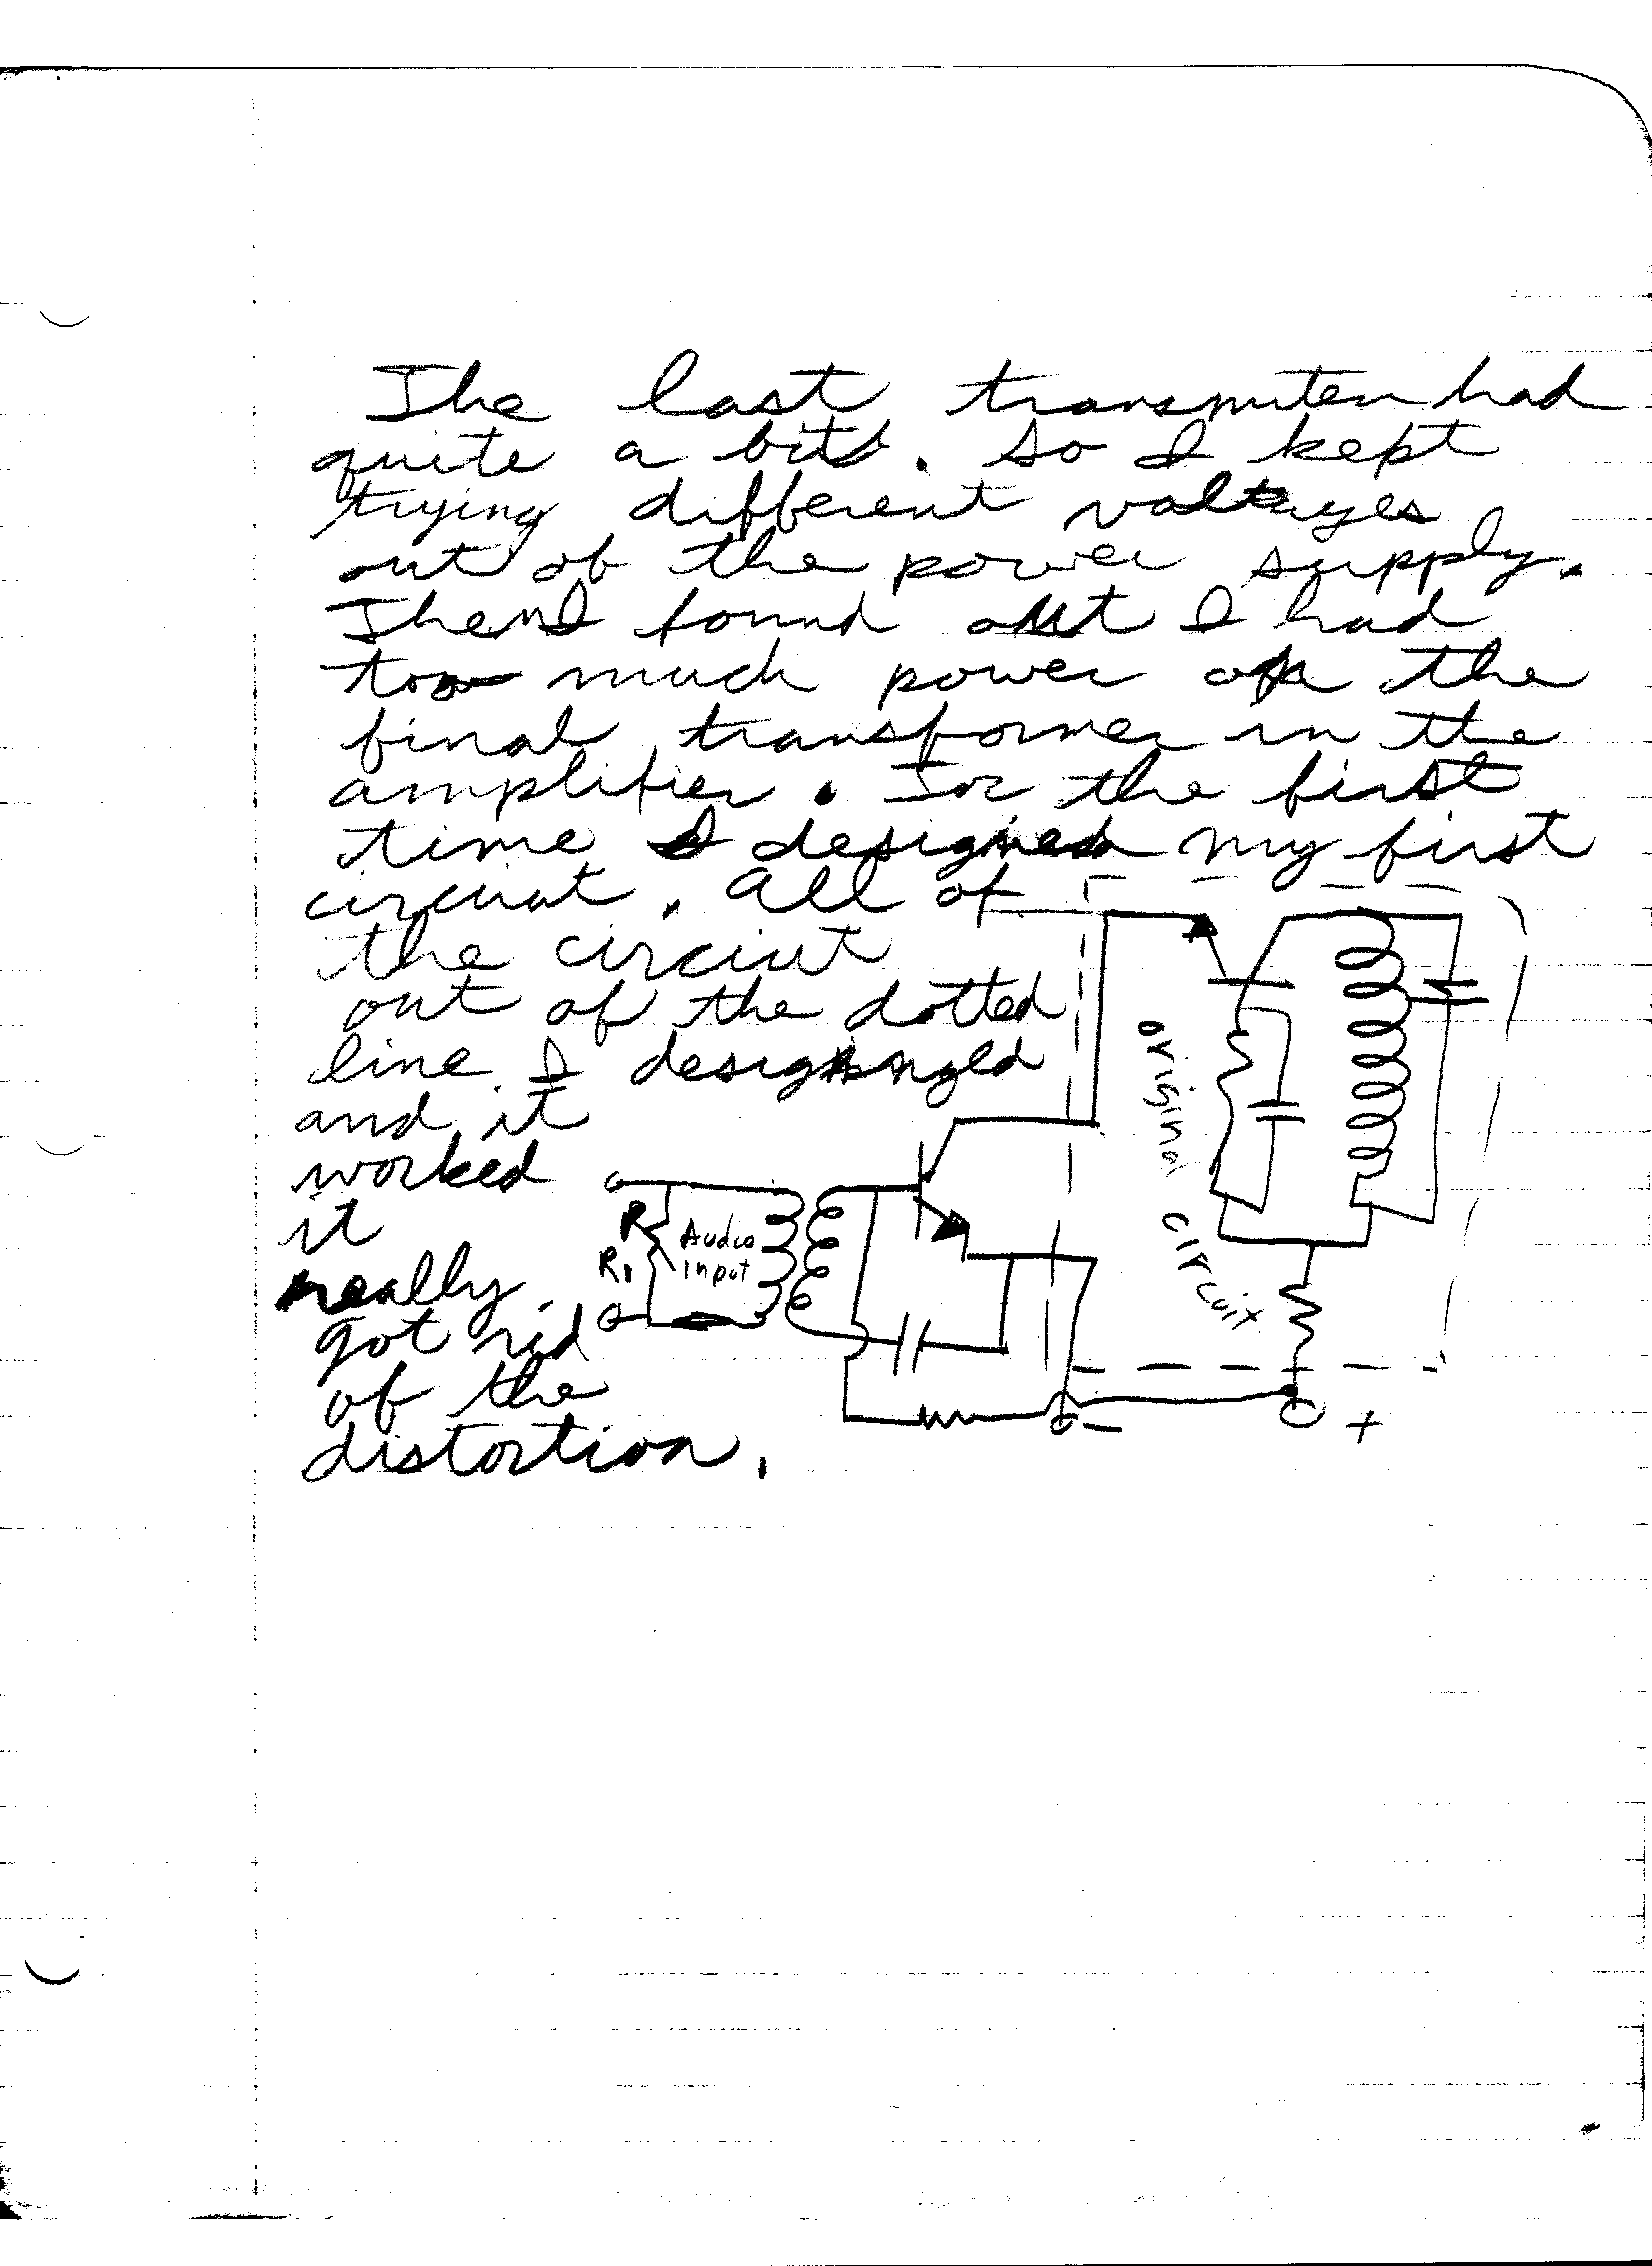 The last transmiter had
quite a bit. So I kept
trying different voltages
out of the power supply.
Then I found out I had
too much power on the
final transformer in the
amplifier. For the first
time I designed my first
circuit. All of
the circiut
out of the dotted
line I
and it
worked
it
really
got rid
of the
distortion.
R
R1
Audio
input
original
circuit
-
+